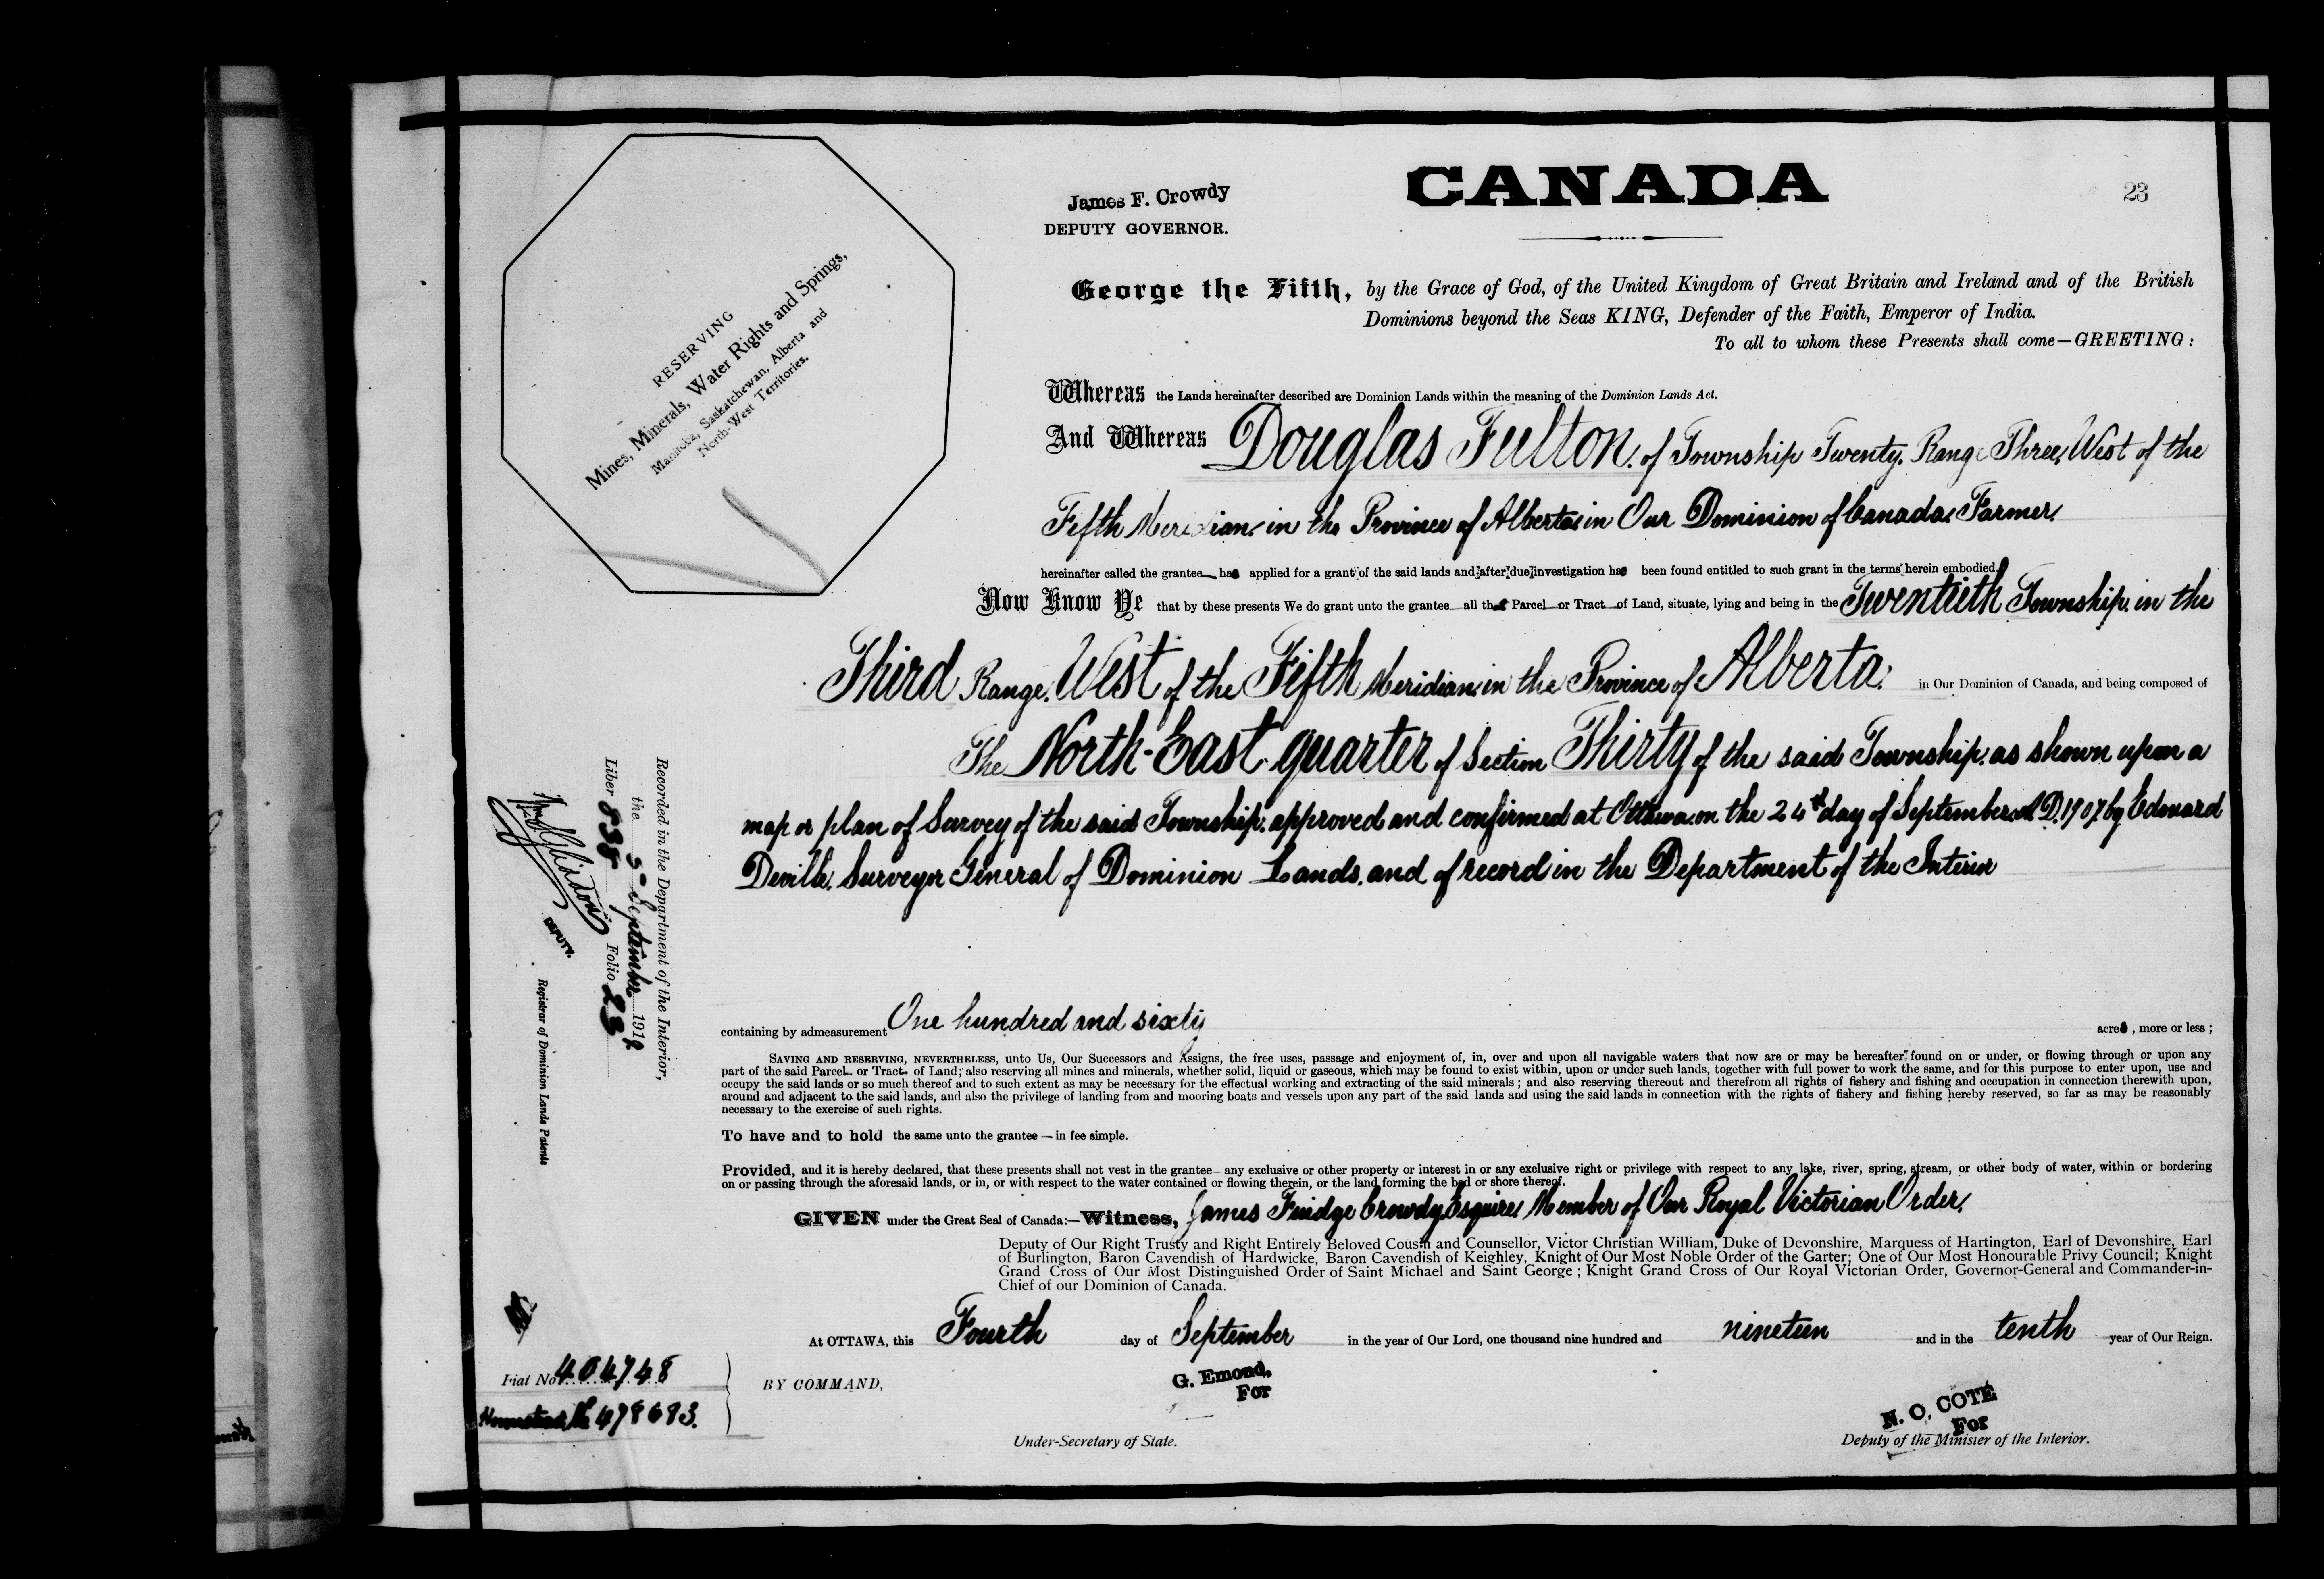 CANADA
23
James F. Crowdy
DEPUTY GOVERNOR.
RESERVING
Mines, Minerals, Water Rights and Springs,
Manitoba, Saskatchewan, Alberta and
North-West Territories.
George the Fifth, by the Grace of God, of the United Kingdom of Great Britain and Ireland and of the British
Dominions beyond the Seas KING, Defender of the Faith, Emperor of India.
To all to whom these Presents shall come—GREETING:
Whereas the Lands hereinafter described are Dominion Lands within the meaning of the Dominion Lands Act.
And Whereas Douglas Fulton, of Township Twenty, Range Three, West of the
Fifth Meridian, in the Province of Alberta, in Our Dominion of Canada, Farmer,
hereinafter called the grantee has applied for a grant of the said lands and after due investigation has been found entitled to such grant in the terms herein embodied.
Now Know Ye that by these presents We do grant unto the grantee all that Parcel or Tract of Land, situate, lying and being in the Twentieth Township, in the
Third Range, West of the Fifth Meridian, in the Province of Alberta, in Our Dominion of Canada, and being composed of
The North-East quarter of Section Thirty of the said Township, as shown upon a
map or plan of Survey of the said Township, approved and confirmed at Ottawa, on the 24th day of September, A.D. 1907, by Edouard
Deville, Surveyor General of Dominion Lands, and of record in the Department of the Interior
containing by admeasurement One hundred and sixty acres, more or less;
SAVING AND RESERVING, NEVERTHELESS, unto Us, Our Successors and Assigns, the free uses, passage and enjoyment of, in, over and upon all navigable waters that now are or may be hereafter found on or under, or flowing through or upon any
part of the said Parcel or Tract of Land; also reserving all mines and minerals, whether solid, liquid or gaseous, which may be found to exist within, upon or under such lands, together with full power to work the same, and for this purpose to enter upon, use and
occupy the said lands or so much thereof and to such extent as may be necessary for the effectual working and extracting of the said minerals; and also reserving thereout and therefrom all rights of fishery and fishing and occupation in connection therewith upon,
around and adjacent to the said lands, and also the privilege of landing from and mooring boats and vessels upon any part of the said lands and using the said lands in connection with the rights of fishery and fishing hereby reserved, so far as may be reasonably
necessary to the exercise of such rights.
To have and to hold the same unto the grantee — in fee simple.
Provided, and it is hereby declared, that these presents shall not vest in the grantee any exclusive or other property or interest in or any exclusive right or privilege with respect to any lake, river, spring, stream, or other body of water, within or bordering
on or passing through the aforesaid lands, or in, or with respect to the water contained or flowing therein, or the land forming the bed or shore thereof.
GIVEN under the Great Seal of Canada:—Witness, James Fuidge Crowdy, Esquire, Member of Our Royal Victorian Order,
Deputy of Our Right Trusty and Right Entirely Beloved Cousin and Counsellor, Victor Christian William, Duke of Devonshire, Marquess of Hartington, Earl of Devonshire, Earl
of Burlington, Baron Cavendish of Hardwicke, Baron Cavendish of Keighley, Knight of Our Most Noble Order of the Garter; One of Our Most Honourable Privy Council; Knight
Grand Cross of Our Most Distinguished Order of Saint Michael and Saint George; Knight Grand Cross of Our Royal Victorian Order, Governor-General and Commander-in-
Chief of our Dominion of Canada.
At OTTAWA, this Fourth day of September in the year of Our Lord, one thousand nine hundred and nineteen and in the tenth year of Our Reign.
BY COMMAND,
G. Emond,
For
Under-Secretary of State.
N. O. COTE
For
Deputy of the Minister of the Interior.
Recorded in the Department of the Interior,
the 5 September 191
Liber 838 Folio 23
DEPUTY.
Registrar of Dominion Lands Patents
Fiat No. 404748
Homestead 478683.